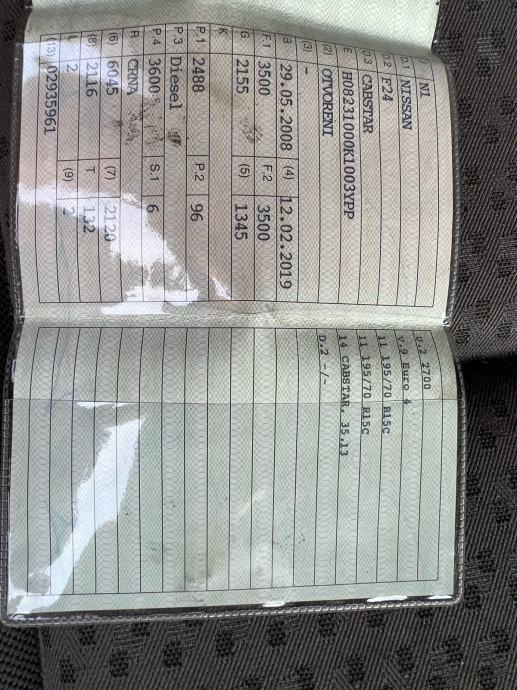 J N1
D.1 NISSAN
D.2 F24
D.3 CABSTAR
E H08231000K1003YPP
(2) OTVORENI
(3) -
B 29.05.2008 (4) 12.02.2019
F.1 3500 F.2 3500
G 2155 (5) 1345
K
P.1 2488 P.2 96
P.3 Diesel
P.4 3600 S.1 6
R CRNA
(6) 6045 (7) 2120
(8) 2116 T 132
L 2 (9) 2
(13) 02935961
U.2 2700
V.9 Euro 4
11 195/70 R15C
11 195/70 R15C
14 CABSTAR, 35.13
D.2 -/-